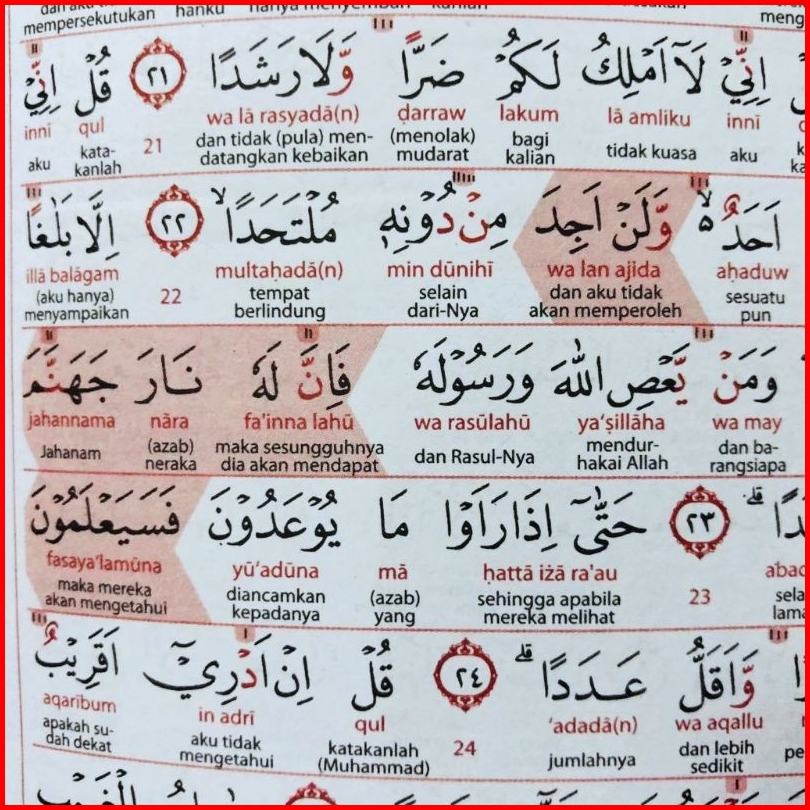 mempersekutukan
اِنِّيْ لَآ اَمْلِكُ لَكُمْ ضَرًّا وَّلَا رَشَدًا ٢١ قُلْ اِنِّيْ
innī lā amliku lakum ḍarraw wa lā rasyadā(n) 21 qul innī
aku tidak kuasa bagi (menolak) dan tidak (pula) men- kata- aku
kalian mudarat datangkan kebaikan kanlah
اَحَدٌ ۙە وَّلَنْ اَجِدَ مِنْ دُوْنِهٖ مُلْتَحَدًا ۙ ٢٢ اِلَّا بَلٰغًا
aḥaduw wa lan ajida min dūnihī multaḥadā(n) 22 illā balāgam
sesuatu dan aku tidak selain tempat (aku hanya)
pun akan memperoleh dari-Nya berlindung menyampaikan
وَمَنْ يَّعْصِ اللّٰهَ وَرَسُوْلَهٗ فَاِنَّ لَهٗ نَارَ جَهَنَّمَ
wa may ya‘ṣillāha wa rasūlahū fa'inna lahū nāra jahannama
dan ba- mendur- dan Rasul-Nya maka sesungguhnya (azab) Jahanam
rangsiapa hakai Allah dia akan mendapat neraka
ۗ ٢٣ حَتّٰىٓ اِذَا رَاَوْا مَا يُوْعَدُوْنَ فَسَيَعْلَمُوْنَ
23 ḥattā iżā ra'au mā yū‘adūna fasaya‘lamūna
sehingga apabila (azab) diancamkan maka mereka
mereka melihat yang kepadanya akan mengetahui
وَّاَقَلُّ عَدَدًا ۗ ٢٤ قُلْ اِنْ اَدْرِيْٓ اَقَرِيْبٌ
wa aqallu ‘adadā(n) 24 qul in adrī aqarībum
dan lebih jumlahnya katakanlah aku tidak apakah su-
sedikit (Muhammad) mengetahui dah dekat